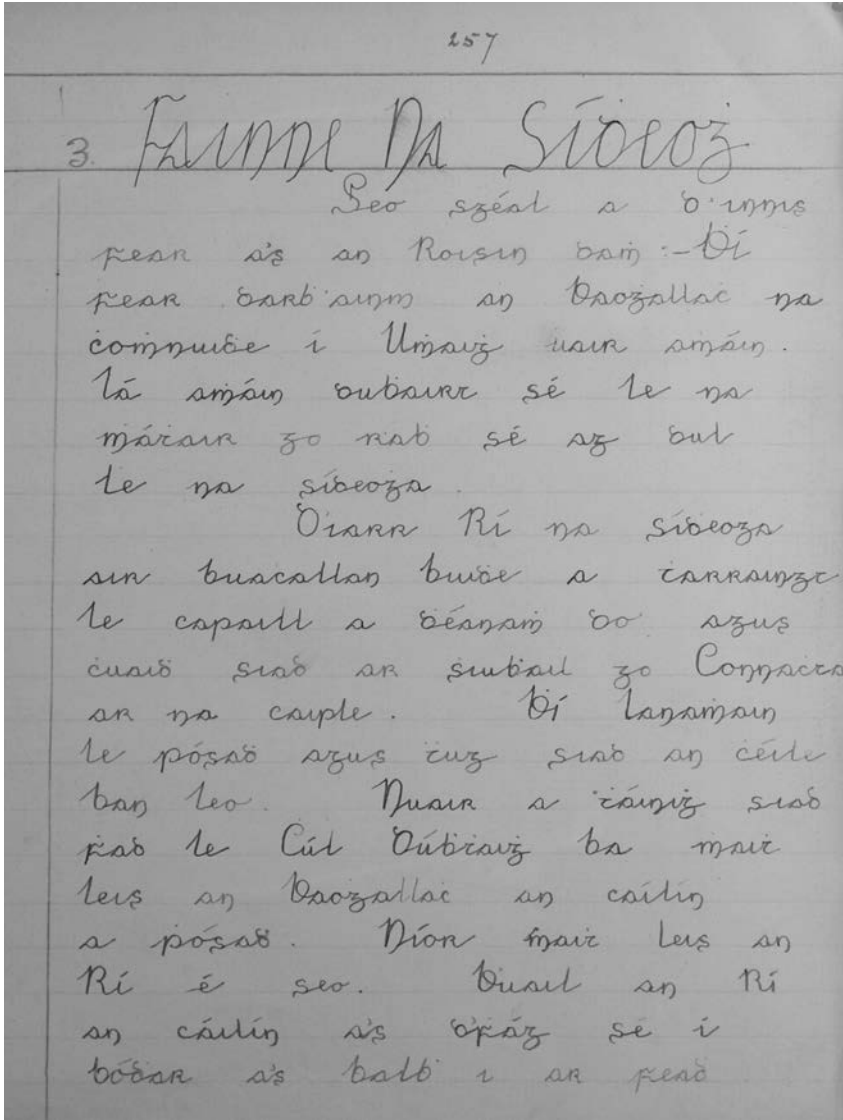 257
3. Fáinne Na Síḋeoġ
Seo sgéal a d'innis
fear a's an Roisin dam :- Ḃí
fear darb ainm an Ḃaoġallaċ na
ċoṁnuiḋe i Umaiġ uair aṁáin.
Lá aṁáin duḃairt sé le na
ṁáṫair go raḃ sé ag dul
le na síḋeoga.
D'iarr Rí na síḋeoga
air buaċallan buiḋe a ṫarraingt
le capaill a ḋéanaṁ do agus
ċuaiḋ siad ar siuḃail go Connaċta
ar na caiple. Ḃí lanaṁain
le pósaḋ agus ṫug siad an céile
ban leo. Nuair a ṫáinig siad
fad le Cúl Dúḃṫaiġ ba ṁaiṫ
leis an Ḃaoġallaċ an cailín
a pósaḋ. Níor ṁaiṫ leis an
Rí é seo. Ḃuail an Rí
an cáilín a's d'ḟág sé í
boḋar a's balḃ i ar fead